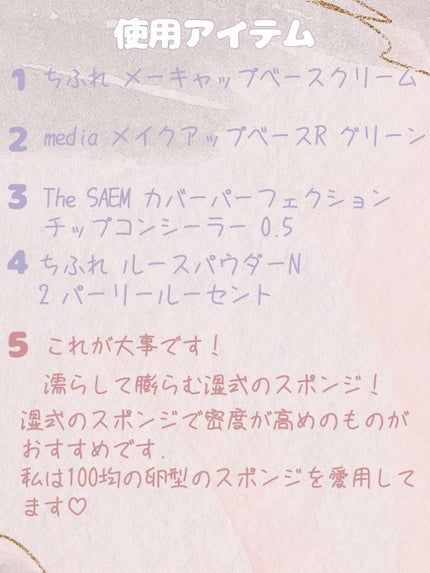 使用アイテム
1 ちふれ メーキャップベースクリーム
2 media メイクアップベースR グリーン
3 The SAEM カバーパーフェクション
チップコンシーラー 0.5
4 ちふれ ルースパウダーN
2 パーリールーセント
5 これが大事です！
濡らして膨らむ湿式のスポンジ！
湿式のスポンジで密度が高めのものが
おすすめです.
私は100均の卵型のスポンジを愛用して
ます♡